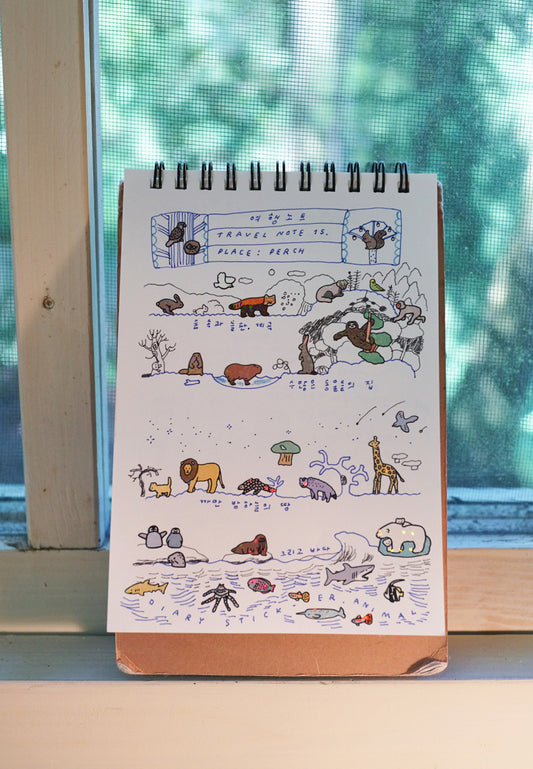 여행노트
TRAVEL NOTE 15.
PLACE: PERCH
들숲과 돌산, 계곡
수많은 동물들의 집
까만 밤하늘의 땅
그리고 바다
DIARY STICKER, ANIMAL